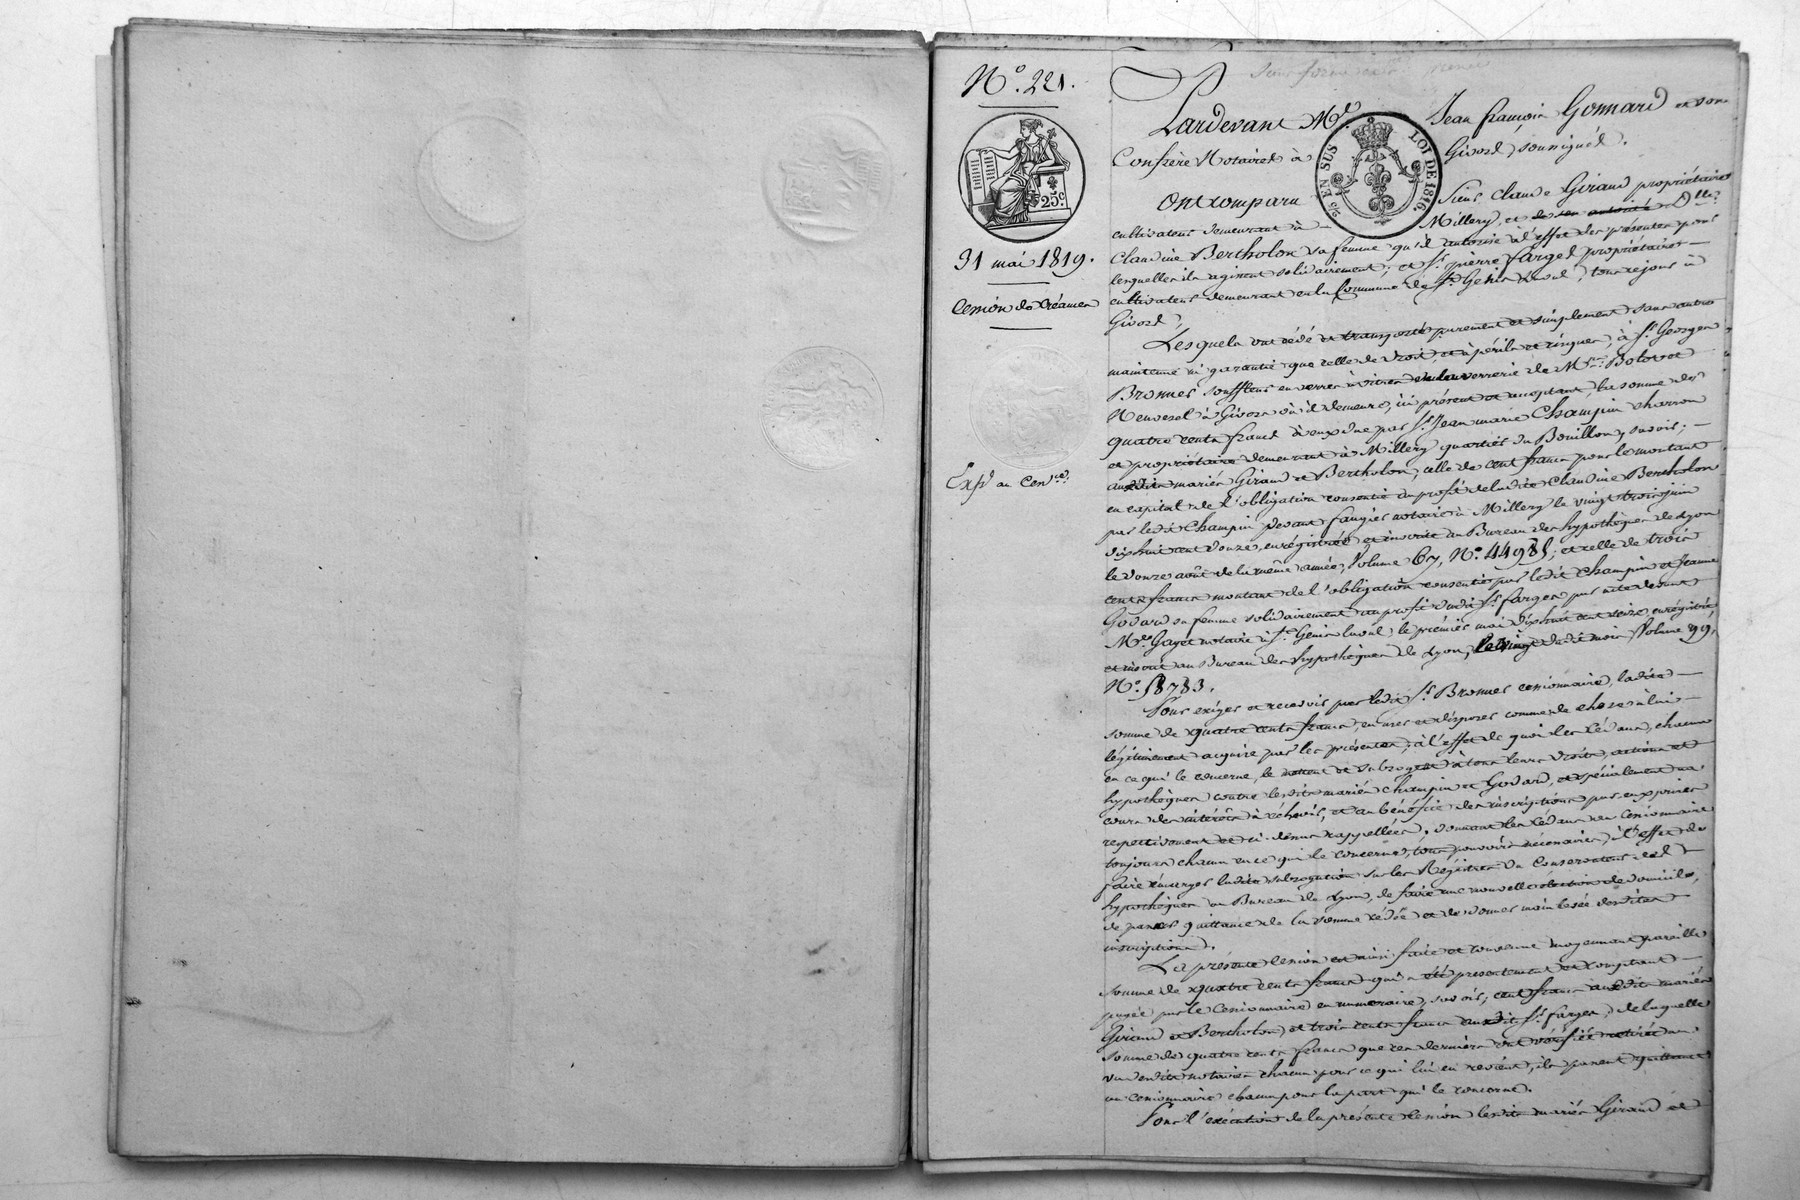 N.° 221.
25 c
31 mai 1819.
Cession de Créances
Exp.é au Cess.re
EN SUS LOI DE 1816.
Pardevant M.e Jean françois Gonnard et son
Confrère Notaires à Givors, soussignés.
Ont comparu Sieur Claude Giraud propriétaire
cultivateur demeurant à Millery, et de son autorité D.lle
Claudine Bertholon sa femme qu'il autorise à l'effet des présentes pour
lesquelles ils agissent solidairement; et S.r pierre farges propriétaire
cultivateur demeurant en la Commune de S.t Genis Laval, tous réjouis à
Givors,
Lesquels ont cédé et transporté purement et simplement sans autre
maintenue ni garantie que celle de droit, et à périls et risques, à S.r Georges
Bronnes souffleur en verres à vitres en la verrerie de M.rs Bolot et
Neuvesel à Givors où il demeure, ici présent et acceptant, la somme de
quatre cents francs à eux due par S.r Jean marie Champin charron
et propriétaire demeurant à Millery quartier du Bouillon, savoir;
auxdits mariés Giraud et Bertholon, celle de cent francs pour le montant
en capital de l'obligation consentie au profit de ladite Claudine Bertholon
par ledit Champin devant faugier notaire à Millery le vingt trois juin
dix huit cent douze, enregistrée et inscrite au Bureau des hypothèques de Lyon
le douze août de la même année, Volume 67, N.° 44985; et celle de trois
cents francs montant de l'obligation consentie par ledit Champin et Jeanne
Godard sa femme solidairement au profit dudit S.r farges par acte devant
M.e Gayet notaire à S.t Genis Laval, le premier mai dix huit cent seize, enregistrée
et inscrite au Bureau des hypothèques de Lyon, le vingt dudit mois Volume 99,
N.° 18783.
Pour exiger et recevoir par ledit S.r Bronnes cessionnaire, ladite
somme de quatre cents francs, en user et disposer comme de chose à lui
légitimement acquise par les présentes; à l'effet de quoi les cédans, chacun
en ce qui le concerne, le mettent et subrogent à tous leurs droits, actions et
hypothèques contre lesdits mariés Champin et Godard, et spécialement au
cours des intérêts à échoir, et au bénéfice des inscriptions par eux prises
respectivement et ci-dessus rappellées, donnant les cédans au Cessionnaire
toujours chacun en ce qui le concerne, tous pouvoirs nécessaires, à l'effet de
faire émarger ladite subrogation sur les Régistres du Conservateur des
hypothèques au Bureau de Lyon, de faire une nouvelle élection de domicile,
de passer quittance de la somme cédée et de donner mainlevée desdites
inscriptions.
La présente Cession est ainsi faite et convenue moyennant pareille
somme de quatre cents francs qui a été présentement et comptant
payée par le Cessionnaire en numéraire, savoir; cent francs auxdits mariés
Giraud et Bertholon, et trois cents francs audit S.r farges, de laquelle
somme de quatre cents francs que ces derniers ont vérifiée et retirée au
vu desdits notaires chacun pour ce qui lui en revient, ils passent quittance
au Cessionnaire chacun pour la part qui le concerne.
Pour l'exécution de la présente Cession lesdits mariés Giraud et